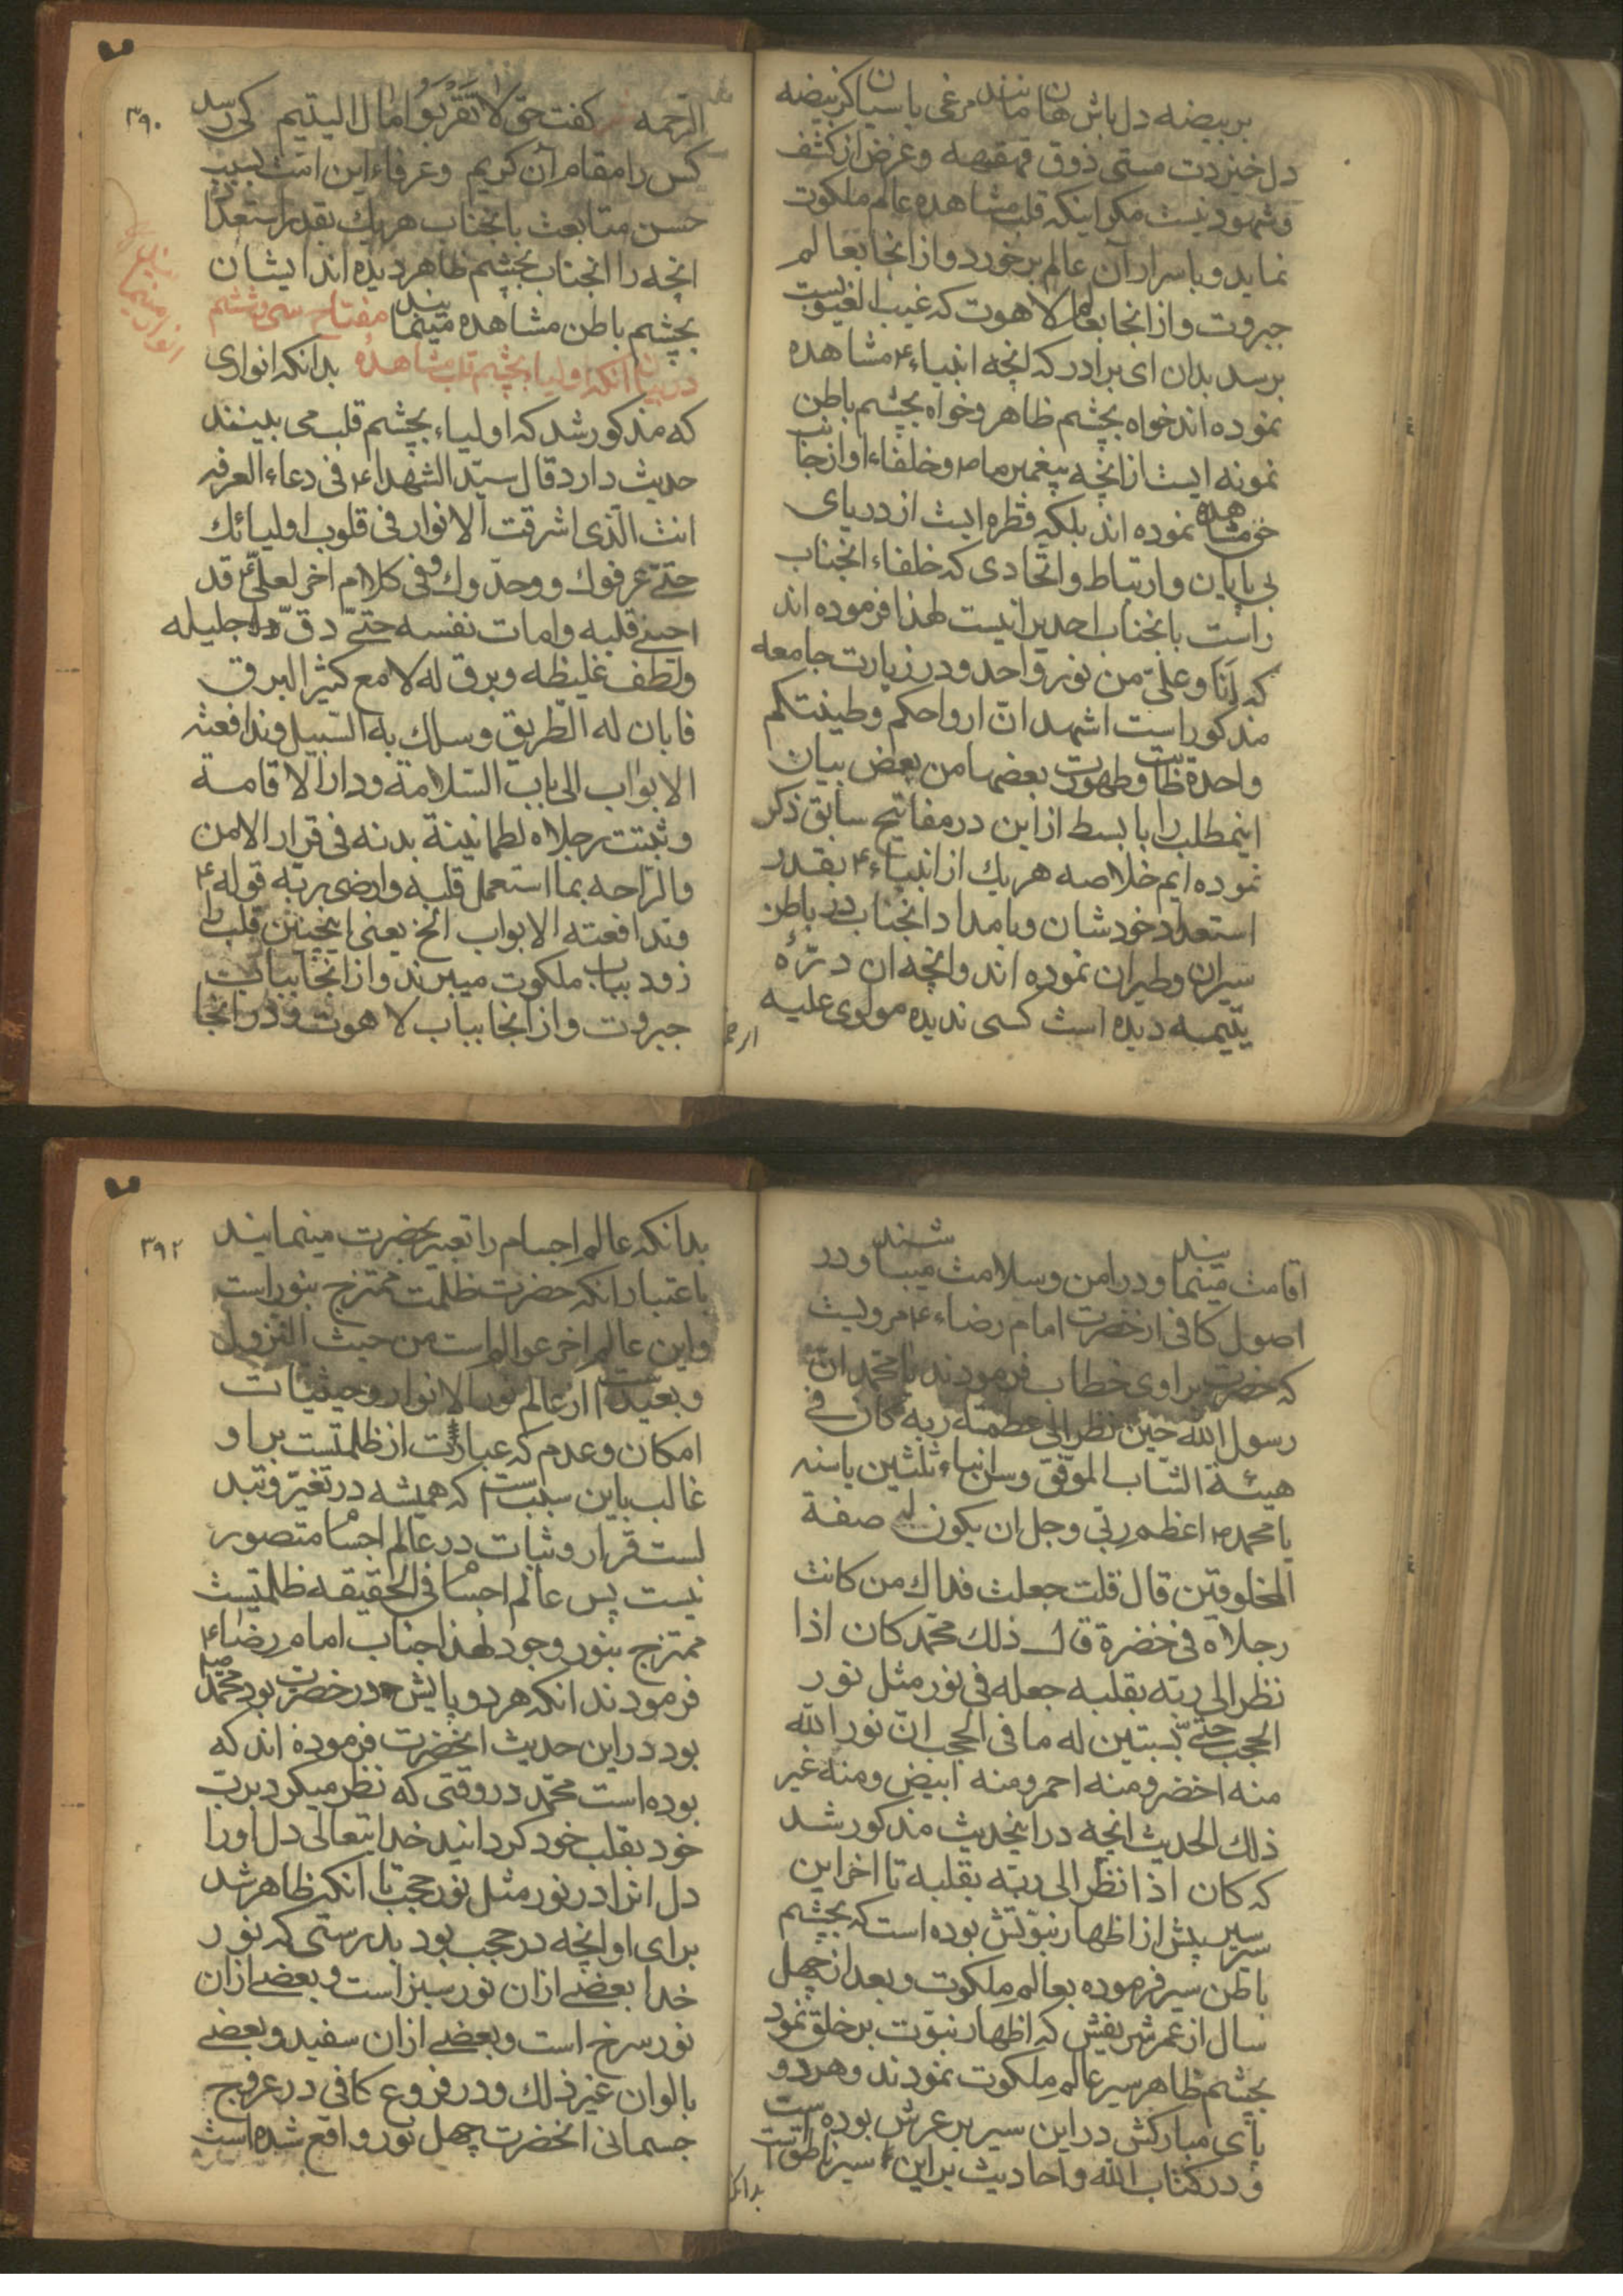 بربیضه دل باش هان مانند مرغی پاسبان کز بیضه
دل خیزدت مستی ذوق قهقهه وغرض از کشف
وشهود نیست مکر اینکه قلب مشاهده عالم ملکوت
نماید وباسرار آن عالم برخورد واز انجا بعالم
جبروت واز انجا بعالم لاهوت که غیب الغیوبست
برسد بدان ای برادر که انچه انبیاء ع مشاهده
نموده اند خواه بچشم ظاهر وخواه بچشم باطن
نمونه ایست از انچه پیغمبر ما ص وخلفاء او از جانب
حق مشاهده نموده اند بلکه قطره ایست از دریای
بی پایان وارتباط واتحادی که خلفاء انجناب
راست بانجناب احدیرا نیست لهذا فرموده اند
که انا وعلی من نور واحد ودر زیارت جامعه
مذکور است اشهد ان ارواحکم وطینتکم
واحدة طابت وطهرت بعضها من بعض بیان
اینمطلب را بابسط از این در مفاتیح سابق ذکر
نموده ایم خلاصه هریك از انبیاء ع بقدر
استعداد خودشان وبامداد انجناب در باطن
سیران وطیران نموده اند وانچه ان درّهٔ
یتیمه دیده است کسی ندیده مولوی علیه
الرحمه
٣٩٠
الرّحمه کفت حق لا تقربوا مال الیتیم کی رسد
کس را مقام آن کریم وعرفاء این امت بسبب
حسن متابعت بانجناب هریك بقدر استعداد
انچه را انجناب بچشم ظاهر دیده اند ایشان
بچشم باطن مشاهده مینمایند مفتاح سی وششم
در بیان انکه اولیا بچشم قلب مشاهدهٔ بدانکه انواری
که مذکور شد که اولیاء بچشم قلب می بینند
حدیث دارد قال سیّد الشهداء ع فی دعاء العرفه
انت الّذی اشرقت الانوار فی قلوب اولیائك
حتّی عرفوك ووحدّوك وفی کلام اخر لعلیّ ع قد
احیی قلبه وامات نفسه حتّی دقّ جلیله
ولطف غلیظه وبرق له لامع کثیر البرق
فابان له الطّریق وسلك به السّبیل وتدافعته
الابواب الی باب السّلامة ودار الاقامة
وثبتت رجلاه لطمانینة بدنه فی قرار الامن
والرّاحه بما استعمل قلبه وارضی ربّه قوله ع
وتدافعته الابواب الخ یعنی اینچنین قلب را
زود بباب ملکوت میبرند واز انجا بباب
جبروت واز انجا بباب لاهوت ودر انجا
اقامت مینمایند ودر امن وسلامت میباشند ودر
اصول کافی از حضرت امام رضاء ع مرویست
که حضرت براوی خطاب فرمودند یا محمد ان
رسول الله حین نظر الی عظمة ربه کان فی
هیئة الشّاب الموفّق وسن ابناء ثلثین یا سنه
یا محمد ص اعظم ربّی وجل ان یکون له صفة
المخلوقین قال قلت جعلت فداك من کانت
رجلاه فی خضرة قال ذلك محمّد کان اذا
نظر الی ربّه بقلبه جعله فی نور مثل نور
الحجب حتّی یستبین له ما فی الحجب انّ نور الله
منه اخضر ومنه احمر ومنه ابیض ومنه غیر
ذلك الحدیث انچه در اینحدیث مذکور شد
که کان اذا نظر الی ربّه بقلبه تا اخر این
سیر پیش از اظهار نبوّتش بوده است که بچشم
باطن سیر فرموده بعالم ملکوت وبعد از چهل
سال از عمر شریفش که اظهار نبوّت بر خلق نمود
بچشم ظاهر سیر عالم ملکوت نمودند وهر دو
پای مبارکش در این سیر بر عرش بوده است
ودر کتاب الله واحادیث بر این سیر ناطق است
بدانکه
٣٩٢
بدانکه عالم اجسام را تعبیر بخضرت مینمایند
باعتبار انکه خضرت ظلمت ممتزج بنور است
واین عالم اخر عوالم است من حیث النزول
وبعید است از عالم نور الانوار وحیثیات
امکان وعدم که عبارت از ظلمتست بر او
غالب باین سبب است که همیشه در تغیّر وتبد
لست قرار وثبات در عالم اجسام متصور
نیست پس عالم اجسام فی الحقیقه ظلمتیست
ممتزج بنور وجود لهذا جناب امام رضاء ع
فرمودند انکه هر دو پایش در خضرت بود محمّد صلم
بود در این حدیث انحضرت فرموده اند که
بوده است محمّد در وقتی که نظر میکرد بربّ
خود بقلب خود کردانید خدا یتعالی دل اورا
دل انرا در نور مثل نور حجب تا انکه ظاهر شد
برای او انچه در حجب بود بدرستی که نور
خدا بعضی از ان نور سبز است وبعضی از ان
نور سرخ است وبعضی از ان سفید وبعضی
بالوان غیر ذلك ودر فروع کافی در عروج
جسمانی انحضرت چهل نور واقع شده است